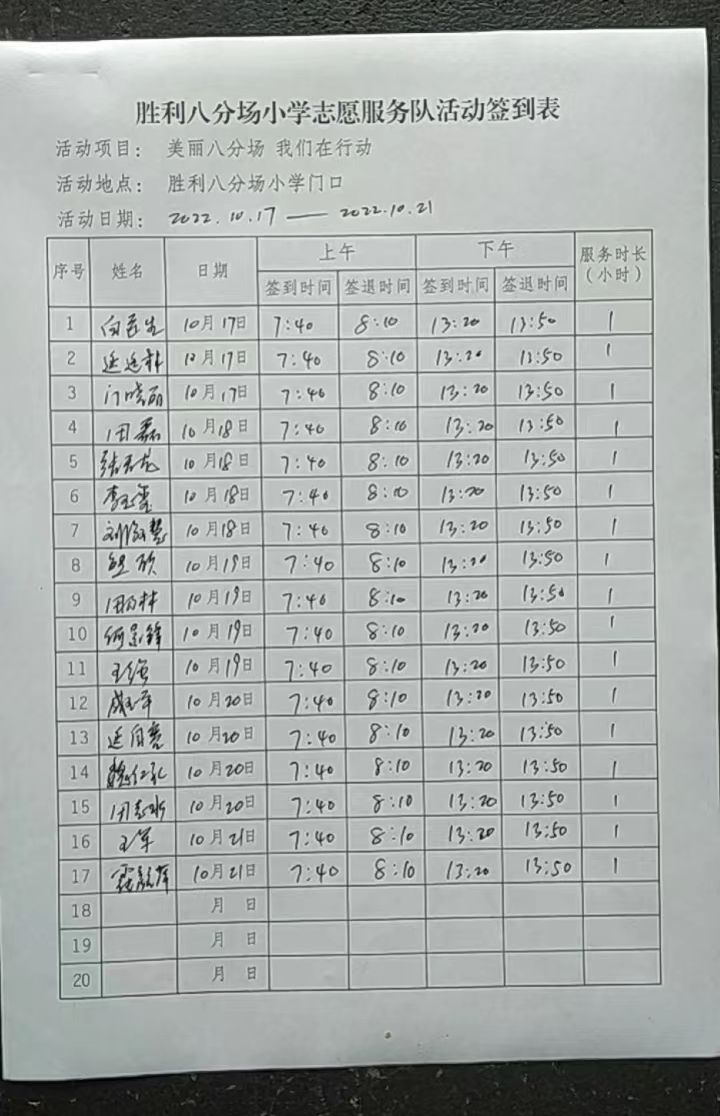 胜利八分场小学志愿服务队活动签到表
活动项目： 美丽八分场 我们在行动
活动地点： 胜利八分场小学门口
活动日期： 2022.10.17 —— 2022.10.21
序号 姓名 日期 上午 下午 服务时长（小时）
签到时间 签退时间 签到时间 签退时间
1 10月17日 7:40 8:10 13:20 13:50 1
2 10月17日 7:40 8:10 13:20 13:50 1
3 门晓丽 10月17日 7:40 8:10 13:20 13:50 1
4 田磊 10月18日 7:40 8:10 13:20 13:50 1
5 10月18日 7:40 8:10 13:20 13:50 1
6 10月18日 7:40 8:10 13:20 13:50 1
7 10月18日 7:40 8:10 13:20 13:50 1
8 10月19日 7:40 8:10 13:20 13:50 1
9 10月19日 7:40 8:10 13:20 13:50 1
10 10月19日 7:40 8:10 13:20 13:50 1
11 王强 10月19日 7:40 8:10 13:20 13:50 1
12 10月20日 7:40 8:10 13:20 13:50 1
13 10月20日 7:40 8:10 13:20 13:50 1
14 10月20日 7:40 8:10 13:20 13:50 1
15 10月20日 7:40 8:10 13:20 13:50 1
16 王军 10月21日 7:40 8:10 13:20 13:50 1
17 10月21日 7:40 8:10 13:20 13:50 1
18 月 日
19 月 日
20 月 日